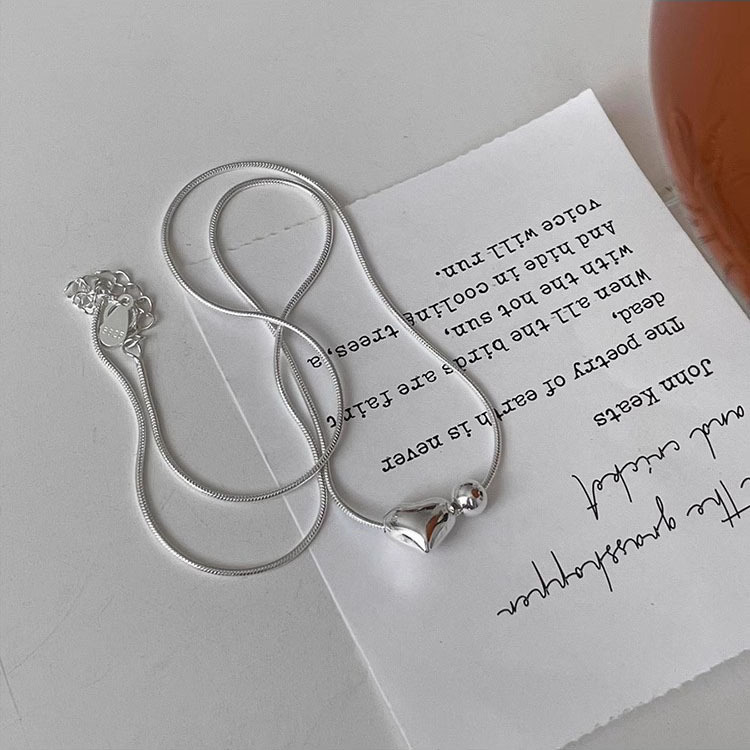 the grasshopper
and cricket
John Keats
The poetry of earth is never
dead,
When all the birds are faint
with the hot sun,
And hide in cooling trees, a
voice will run.